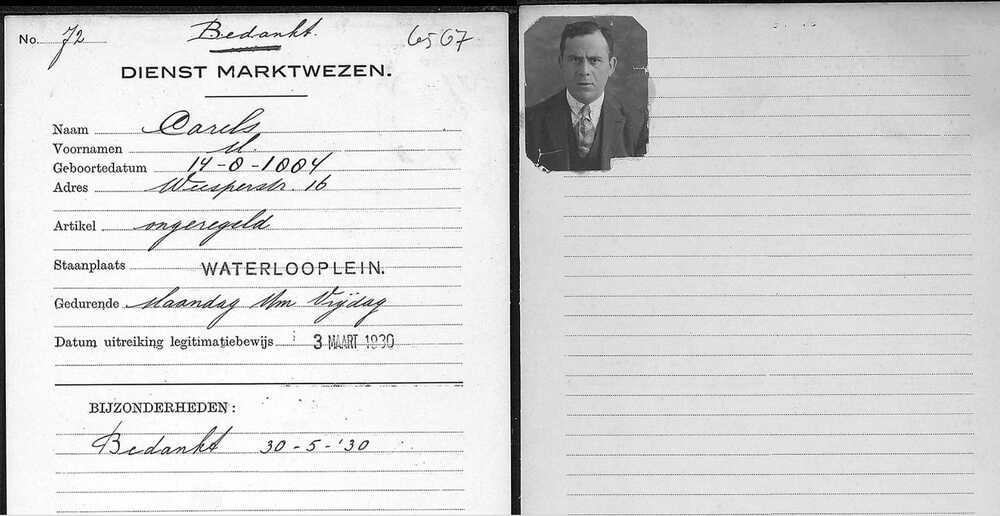 No. 72 Bedankt. 6567
DIENST MARKTWEZEN.
Naam Carels
Voornamen M.
Geboortedatum 14-8-1884
Adres Weesperstr. 16
Artikel ongeregeld
Staanplaats WATERLOOPLEIN.
Gedurende Maandag t/m Vrijdag
Datum uitreiking legitimatiebewijs 3 MAART 1930
BIJZONDERHEDEN:
Bedankt 30-5-'30